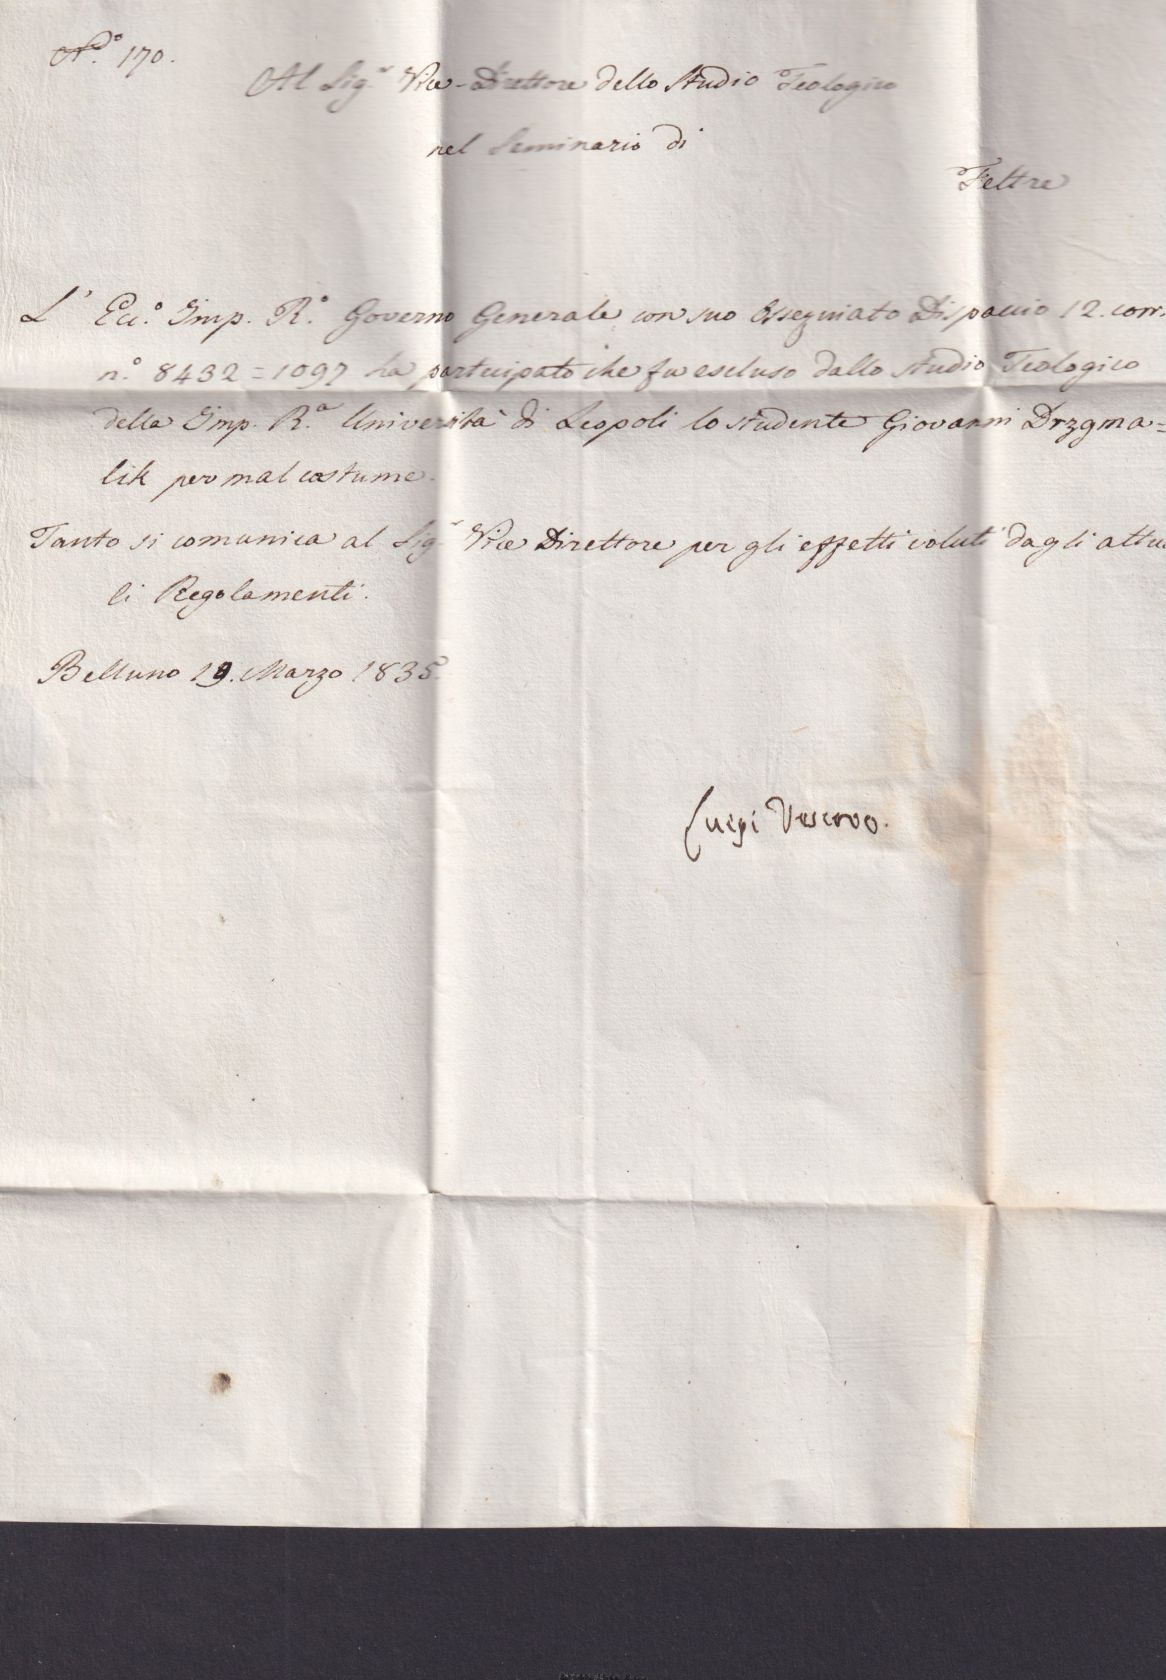 N.° 170.
Al Sig.r Vice-Direttore dello Studio Teologico
nel Seminario di
Feltre
L' Ecc.° Imp. R.° Governo Generale con suo Ossequiato Dispaccio 12. corr.
n.° 8432=1097 ha partecipato che fu escluso dallo Studio Teologico
della Imp. R.a Università di Leopoli lo studente Giovanni Drzgma=
lik per mal costume.
Tanto si comunica al Sig.r Vice Direttore per gli effetti voluti dagli attua
li Regolamenti.
Belluno 19. Marzo 1835.
Luigi Vescovo.